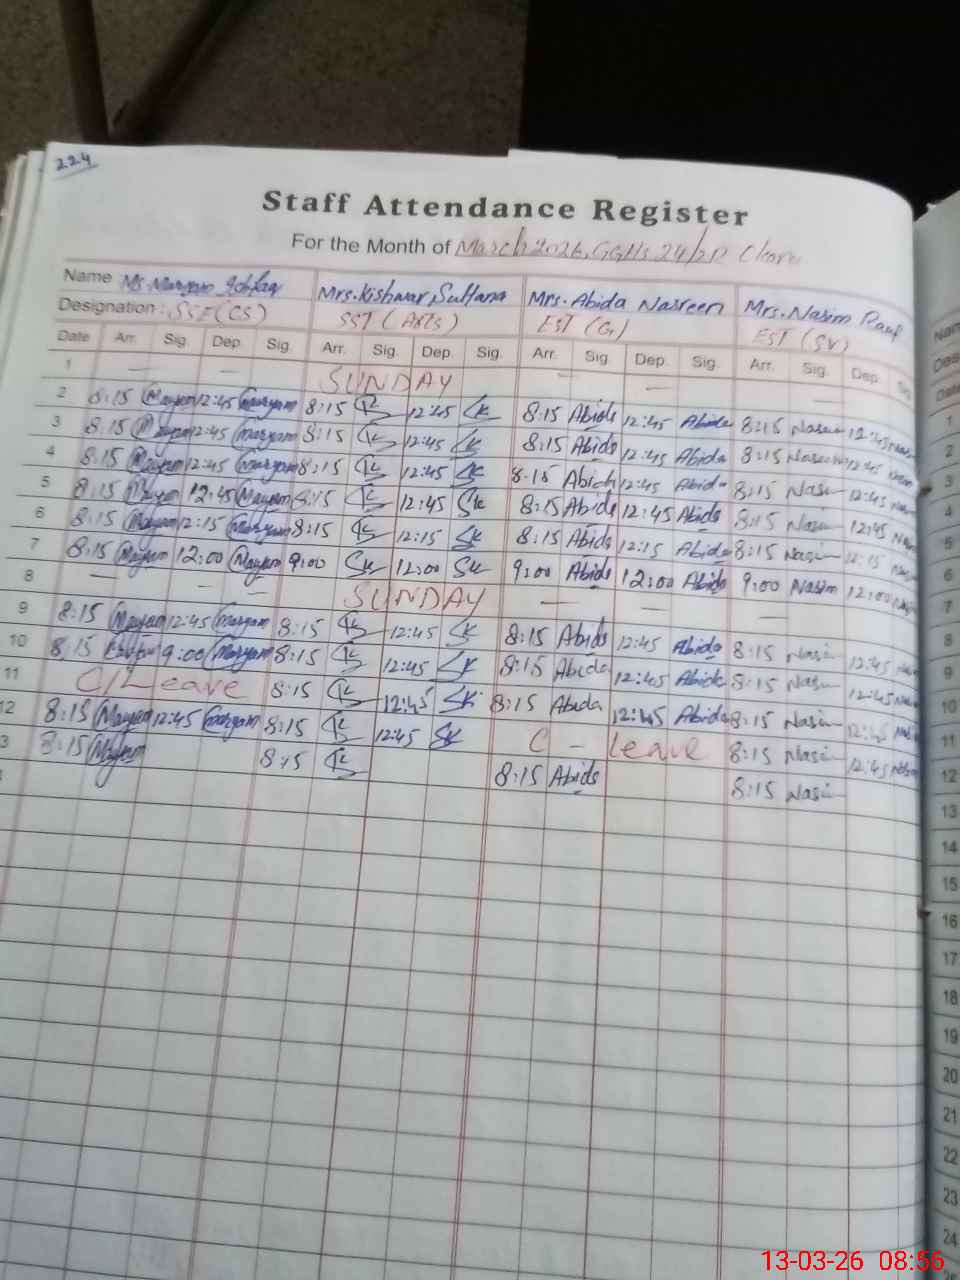 224
Staff Attendance Register
For the Month of March 2026, GGHS 24/2R
Name Ms. Maryam Ishfaq Mrs. Kishwar Sultana Mrs. Abida Nasreen Mrs. Nasim Rauf
Designation: SSE (CS) SST (Arts) EST (G) EST (SV)
Date Arr. Sig. Dep. Sig. Arr. Sig. Dep. Sig. Arr. Sig. Dep. Sig. Arr. Sig. Dep.
1 — — SUNDAY — — —
2 8:15 Maryam 12:45 Maryam 8:15 12:45 SK 8:15 Abida 12:45 Abida 8:15 Nasim 12:45
3 8:15 Maryam 12:45 Maryam 8:15 12:45 SK 8:15 Abida 12:45 Abida 8:15 Nasim 12:45
4 8:15 Maryam 12:45 Maryam 8:15 12:45 SK 8:15 Abida 12:45 Abida 8:15 Nasim 12:45
5 8:15 Maryam 12:45 Maryam 8:15 12:45 SK 8:15 Abida 12:45 Abida 8:15 Nasim 12:45
6 8:15 Maryam 12:15 Maryam 8:15 12:15 SK 8:15 Abida 12:15 Abida 8:15 Nasim 12:15
7 8:15 Maryam 12:00 Maryam 9:00 SK 12:00 SK 9:00 Abida 12:00 Abida 9:00 Nasim 12:00
8 — — — SUNDAY — — —
9 8:15 Maryam 12:45 Maryam 8:15 12:45 SK 8:15 Abida 12:45 Abida 8:15 Nasim 12:45
10 8:15 9:00 Maryam 8:15 12:45 SK 8:15 Abida 12:45 Abida 8:15 Nasim 12:45
11 C/Leave 8:15 12:45 SK 8:15 Abida 12:45 Abida 8:15 Nasim 12:45
12 8:15 Maryam 12:45 Maryam 8:15 12:45 SK C - Leave 8:15 Nasim 12:45
3 8:15 Maryam 8:15 8:15 Abida 8:15 Nasim
1
2
3
4
5
6
7
8
9
10
11
12
13
14
15
16
17
18
19
20
21
22
23
24
13-03-26 08:56